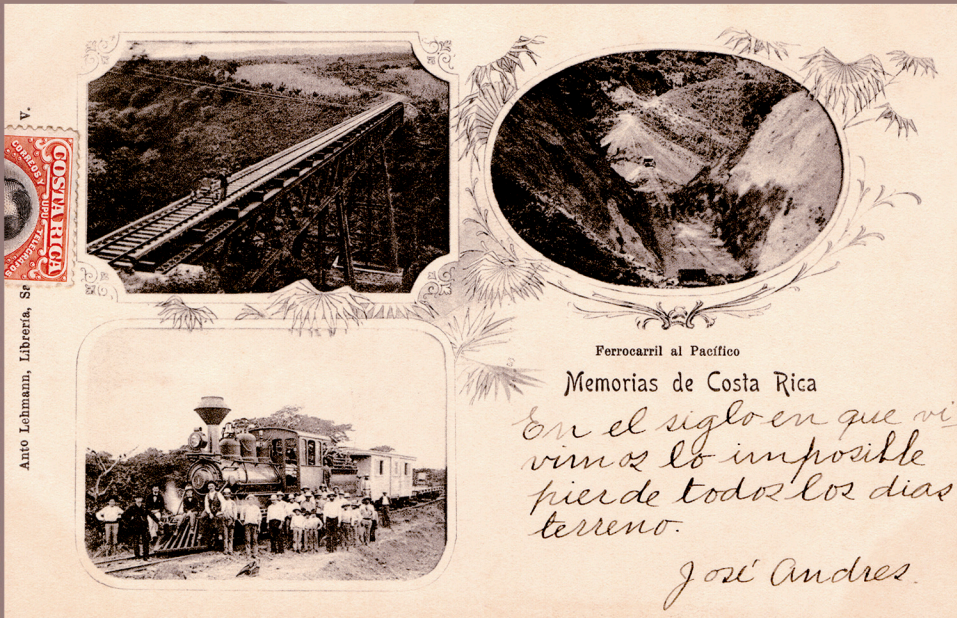 Anto Lehmann, Librería, V.
COSTA RICA
CORREOS Y
TELEGRAFOS
UPU
Ferrocarril al Pacífico
Memorias de Costa Rica
En el siglo en que vi-
vimos lo imposible
pierde todos los dias
terreno.
José Andres.